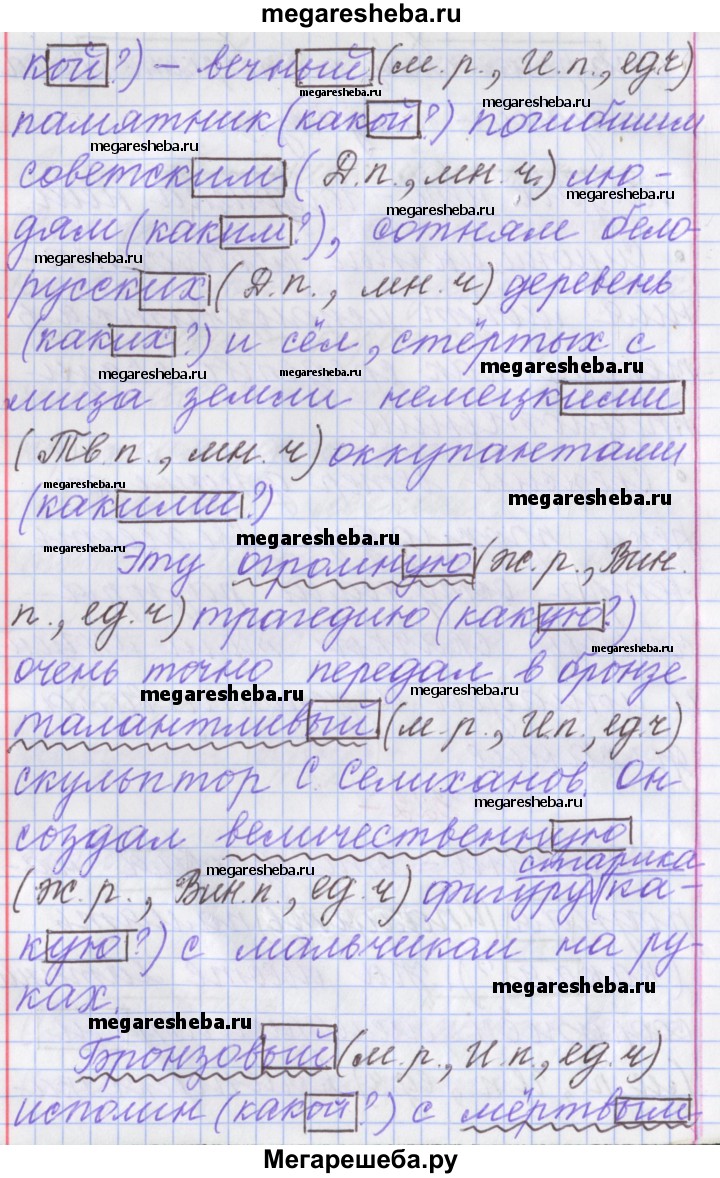 megaresheba.ru
кой?) – вечный (м.р., И.п., ед.ч)
megaresheba.ru megaresheba.ru
памятник (какой?) погибшим
megaresheba.ru
советским (Д.п., мн.ч.) лю-
megaresheba.ru megaresheba.ru
дям (каким?), сотням бело-
megaresheba.ru
русских (Д.п., мн.ч) деревень
(каких?) и сёл, стёртых с
megaresheba.ru megaresheba.ru megaresheba.ru
лица земли немецкими
(Тв.п., мн.ч) оккупантами
megaresheba.ru
(какими?)
megaresheba.ru
megaresheba.ru megaresheba.ru
Эту огромную (ж.р., Вин.
п., ед.ч) трагедию (какую?)
megaresheba.ru
очень точно передал в бронзе
megaresheba.ru megaresheba.ru
талантливый (м.р., И.п., ед.ч)
скульптор С. Селиханов. Он
megaresheba.ru
создал величественную
старика
megaresheba.ru
(ж.р., Вин.п., ед.ч) фигуру (ка-
кую?) с мальчиком на ру-
ках.
megaresheba.ru
megaresheba.ru
Бронзовый (м.р., И.п., ед.ч)
megaresheba.ru
исполин (какой?) с мёртвым
megaresheba.ru
Мегарешеба.ру